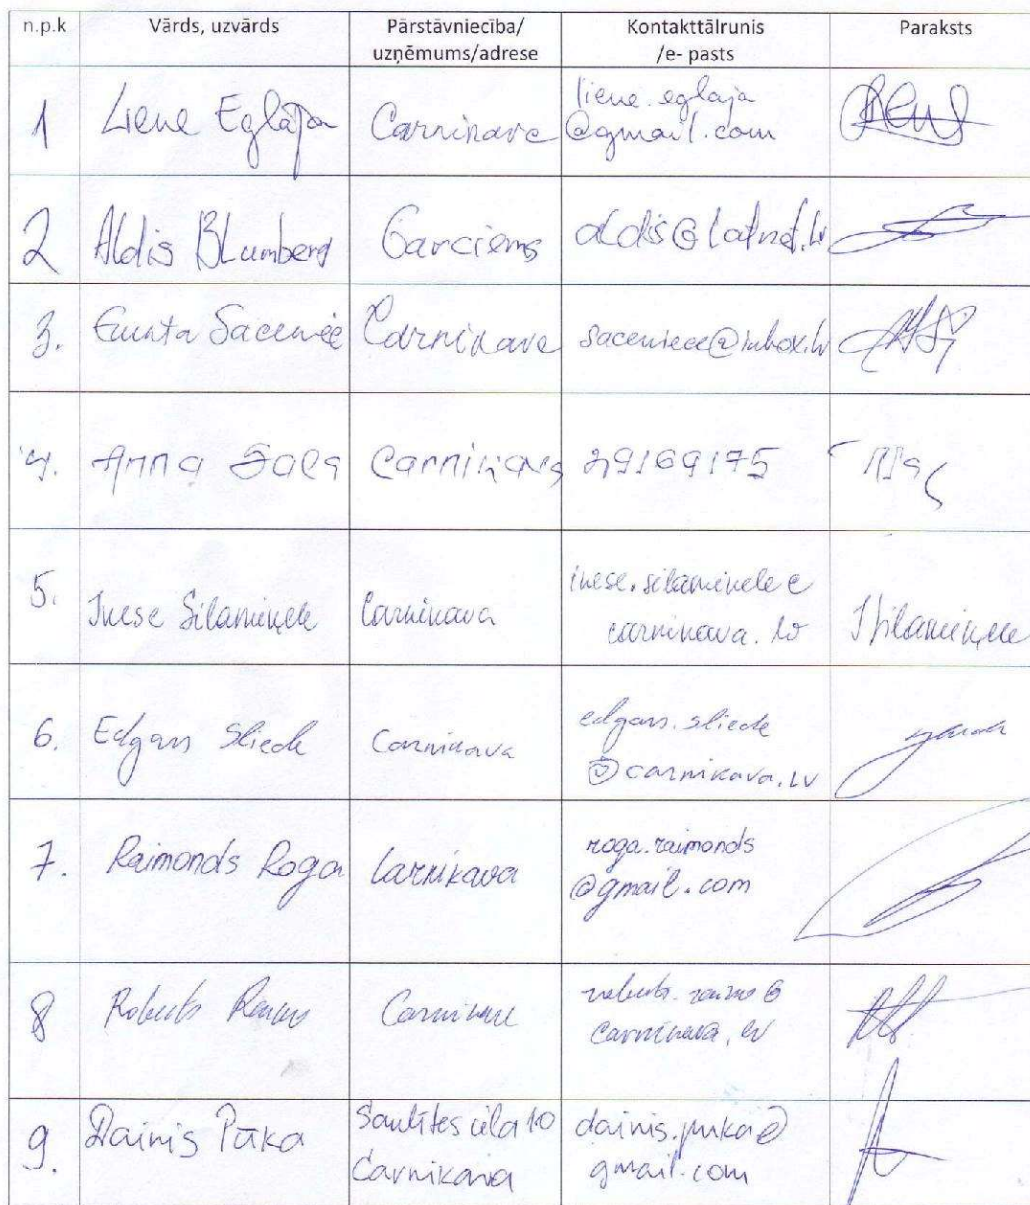 n.p.k Vārds, uzvārds Pārstāvniecība/ Kontakttālrunis Paraksts
uzņēmums/adrese /e- pasts
1 Liene Eglāja Carnikava liene.eglaja
@gmail.com
2 Aldis Blumberg Garciems aldis@latnet.lv
3. Gunta Saceniece Carnikava saceniece@inbox.lv
4. Anna Carnikava 29169175
5. Inese Silamiķele Carnikava inese.silamikele@
carnikava.lv
6. Edgars Sliede Carnikava edgars.sliede
@carnikava.lv
7. Raimonds Roga Carnikava roga.raimonds
@gmail.com
8 Roberts Carnikava
carnikava.lv
9. Dainis Pūka Saulītes iela 10 dainis.puka@
Carnikava gmail.com